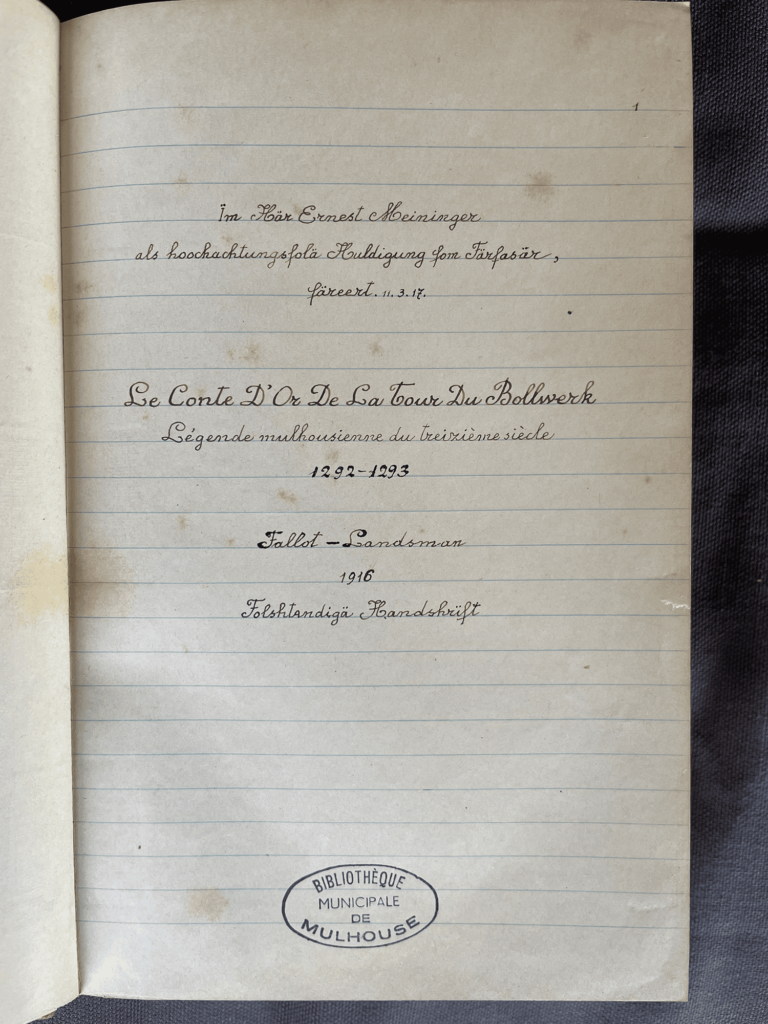 1
Ïm Här Ernest Meininger
als hoochachtungsfolä Huldigung fom Färfasär,
färeert. 11.3.17.
Le Conte D'Or De La Tour Du Bollwerk
Légende mulhousienne du treizième siècle
1292-1293
Fallot-Landsman
1916
Folshtandigä Handshrïft
BIBLIOTHÈQUE
MUNICIPALE
DE
MULHOUSE